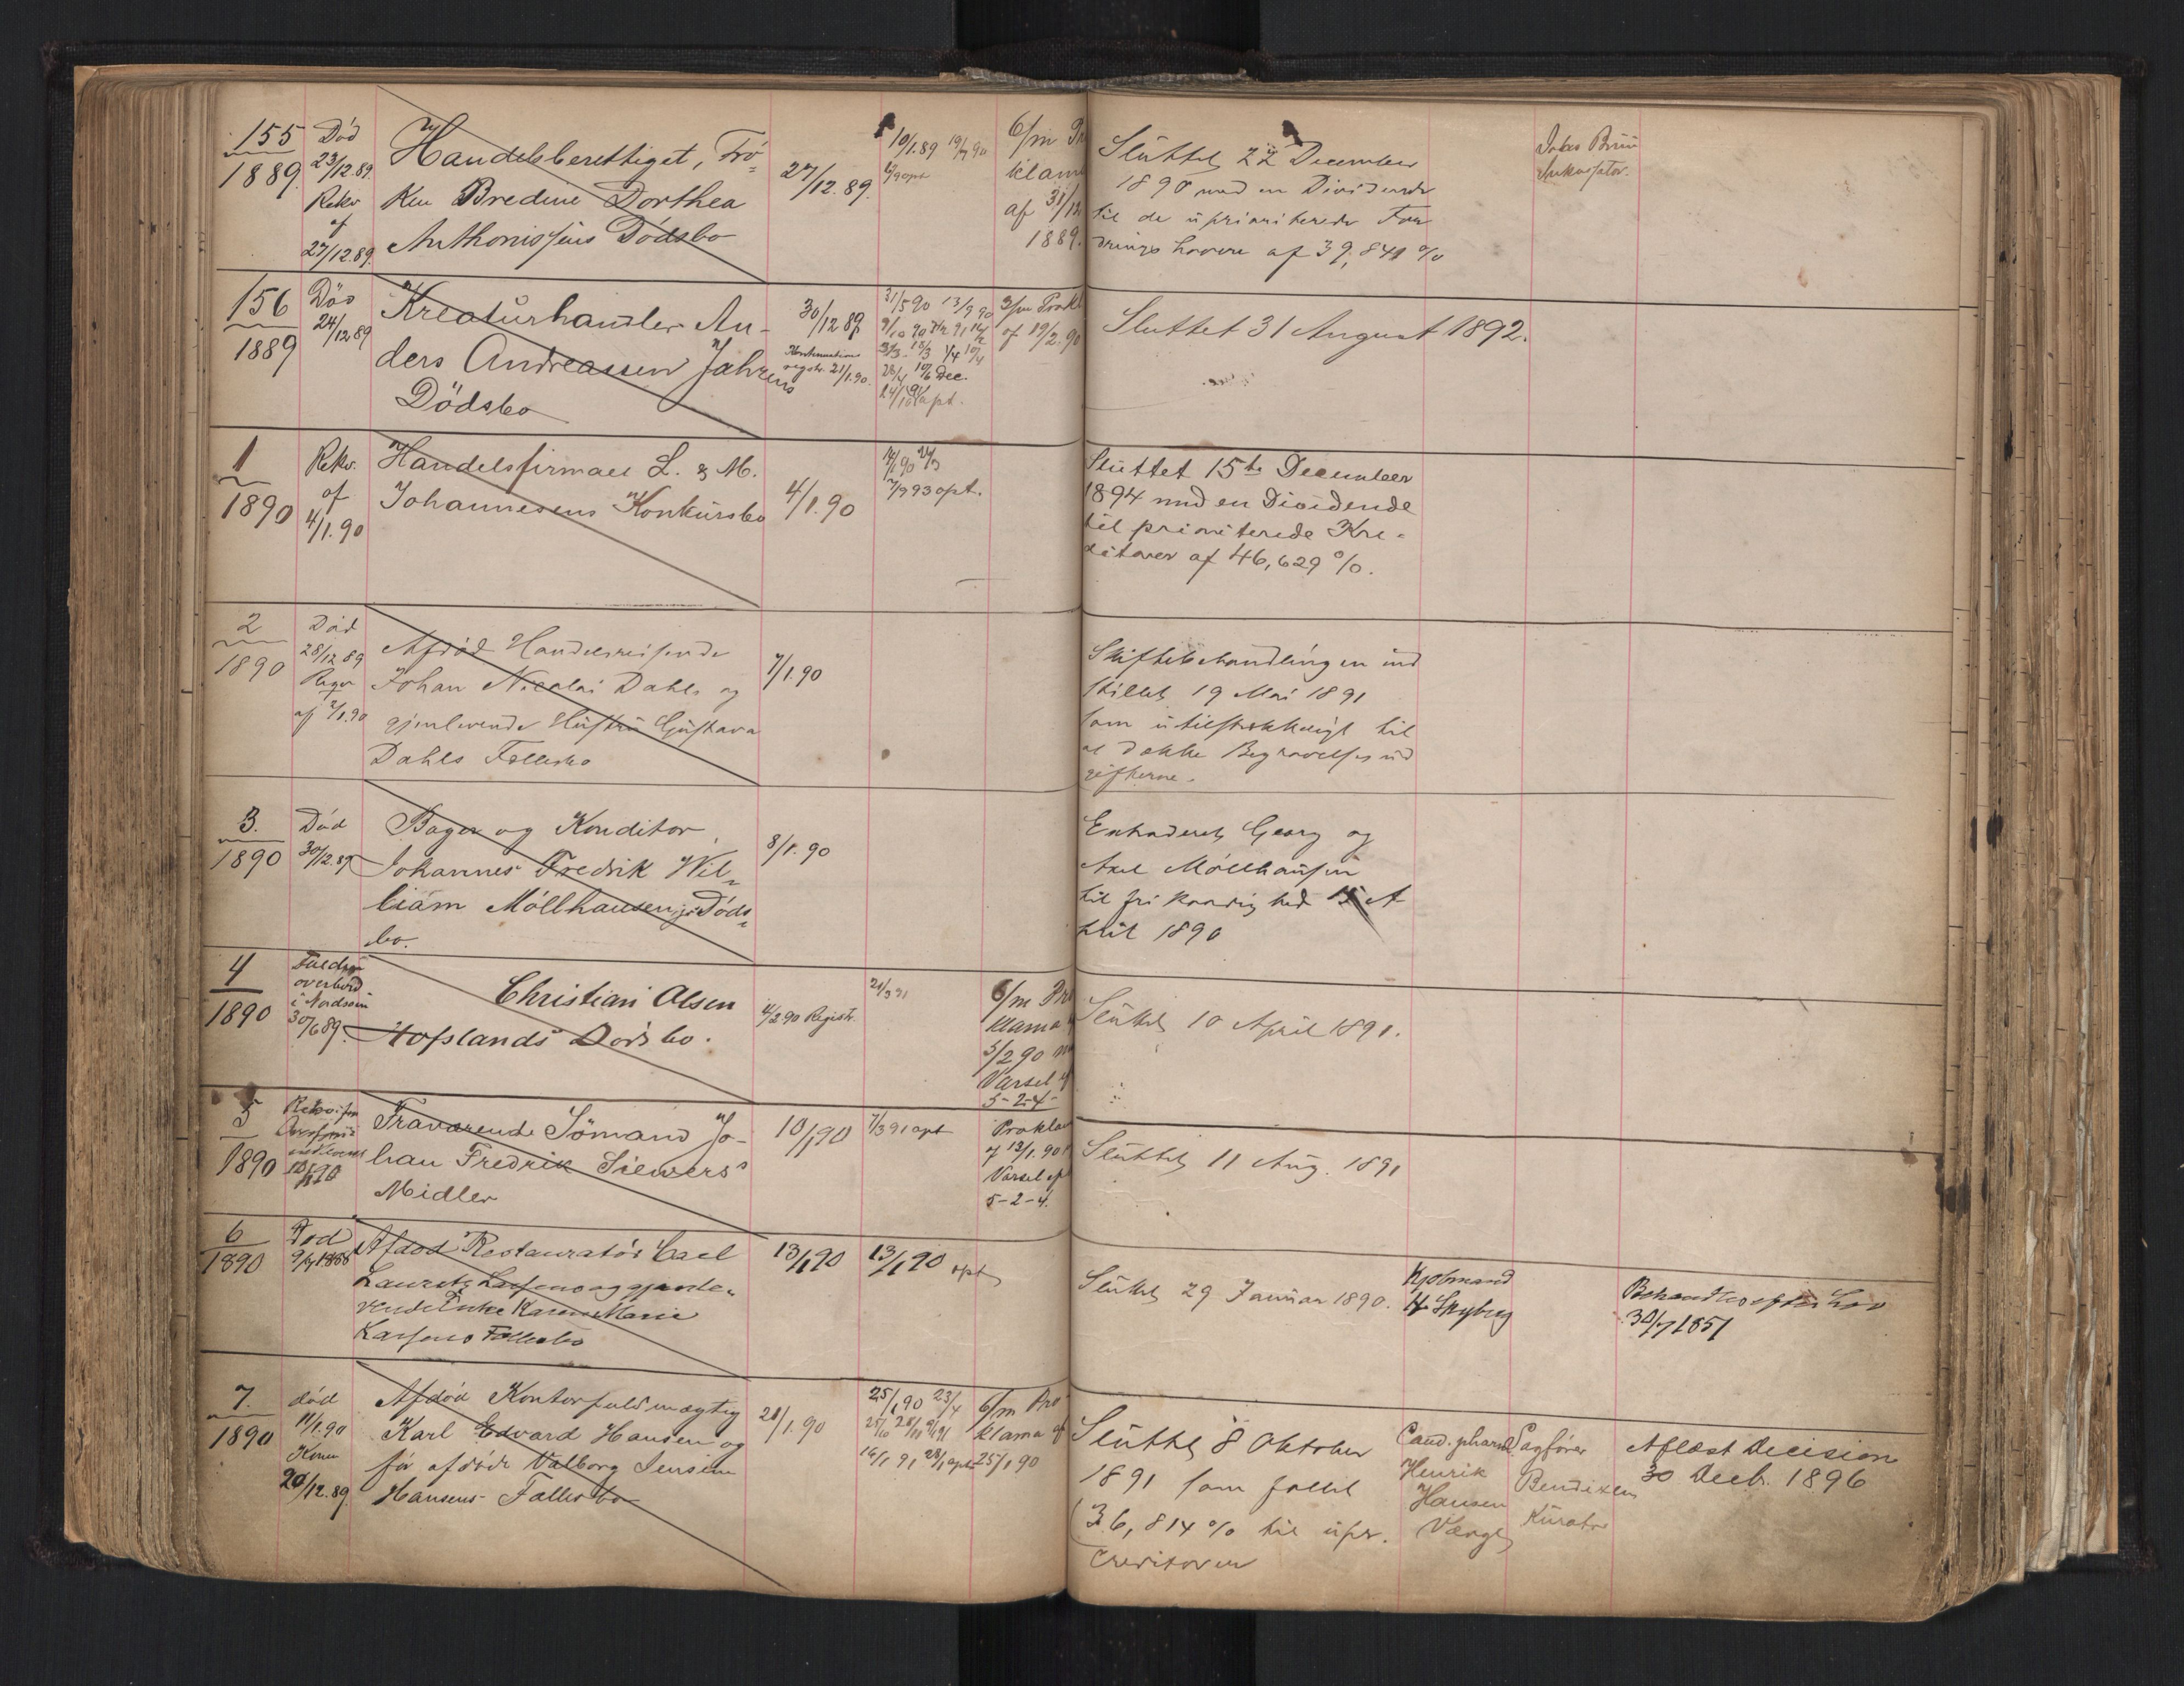 155
1889
Död
23/12.89.
Rekv
af
27/12.89.
Handelsberettiget, Frö-
ken Bredine Dorthea
Anthonissens Dödsbo
27/12.89.
10/1.89 19/7 90
6/m Pro
klama
af 31/12
1889.
Sluttet 22 December
1890 med en Dividende
til de uprioriterede For
dringshavere af 39,841 %
156
1889
Död
24/12 89
Kreaturhandler An-
ders Andreassen Jahrens
Dödsbo
30/12 89
registr. 21/1.90.
31/5 90 13/9 90
3/m Prokl
af 19/2. 90
Sluttet 31 August 1892.
1
1890
Rekv.
af
4/1.90
Handelsfirmaet L. & M.
Johannesens Konkursbo
4/1.90
7/9 93 opt.
Sluttet 15de December
1894 med en Dividende
til prioriterede Kre-
ditorer af 46,629 %.
2
1890
Död
28/12 89
af 7/1.90
Afdöd Handelsreisende
Johan Nicolai Dahls og
gjenlevende Hustru Gustava
Dahls Fællesbo
7/1.90
Skiftebehandlingen ind
stillet 19 Mai 1891
som utilstrækkeligt til
at dække Begravelsesud
gifterne.
3.
1890
Död
30/12.89
Bager og Konditor
Johannes Fredrik Wil-
liam Möllhausens Döds-
bo.
8/1.90
Extraderet Georg og
Axel Möllhausen
til fri Raadighed 15 A
pril 1890
4
1890
Falden
overbord
i Nordsöen
30/6 89.
Christian Olsen
Hofslands Dödsbo.
4/2 90 Registr.
21/3 91
6/m Pro
klama
5/2 90
Varsel
5-2-4-
Sluttet 10 April 1891.
5
1890
Fraværende Sömand Jo-
han Fredrik Siewers's
Midler
10/1 90
7/3 91 opt
Prokla
af 13/1.90
Varsel
5-2-4.
Sluttet 11 Aug. 1891
6
1890
Död
9/7 1888
Afdöd Restauratör Carl
Lauritz Larsens og gjenle-
vende Enke Karen Marie
Larsens Fællesbo
13/1 90
13/1 90
opt
Sluttet 29 Januar 1890.
Kjöbmand
H. Skyberg
Behandles efter Lov
30/7 1851
7.
1890
död
11/1.90
Konen
20/12.89.
Afdöd Kontorfuldmægtig
Karl Edvard Hansen og
för afdöde Valborg Jensine
Hansens Fællesbo
21/1.90
25/1 90 23/4
6/m Pro
klama af
25/1 90
Sluttet 8 Oktober
1891 som fallit
(36,814 % til upr.
Creditorer
Cand. pharm
Henrik
Hansen
Værge
Sagförer
Bendixen
Kurator
Aflæst Decision
30 Decb. 1896